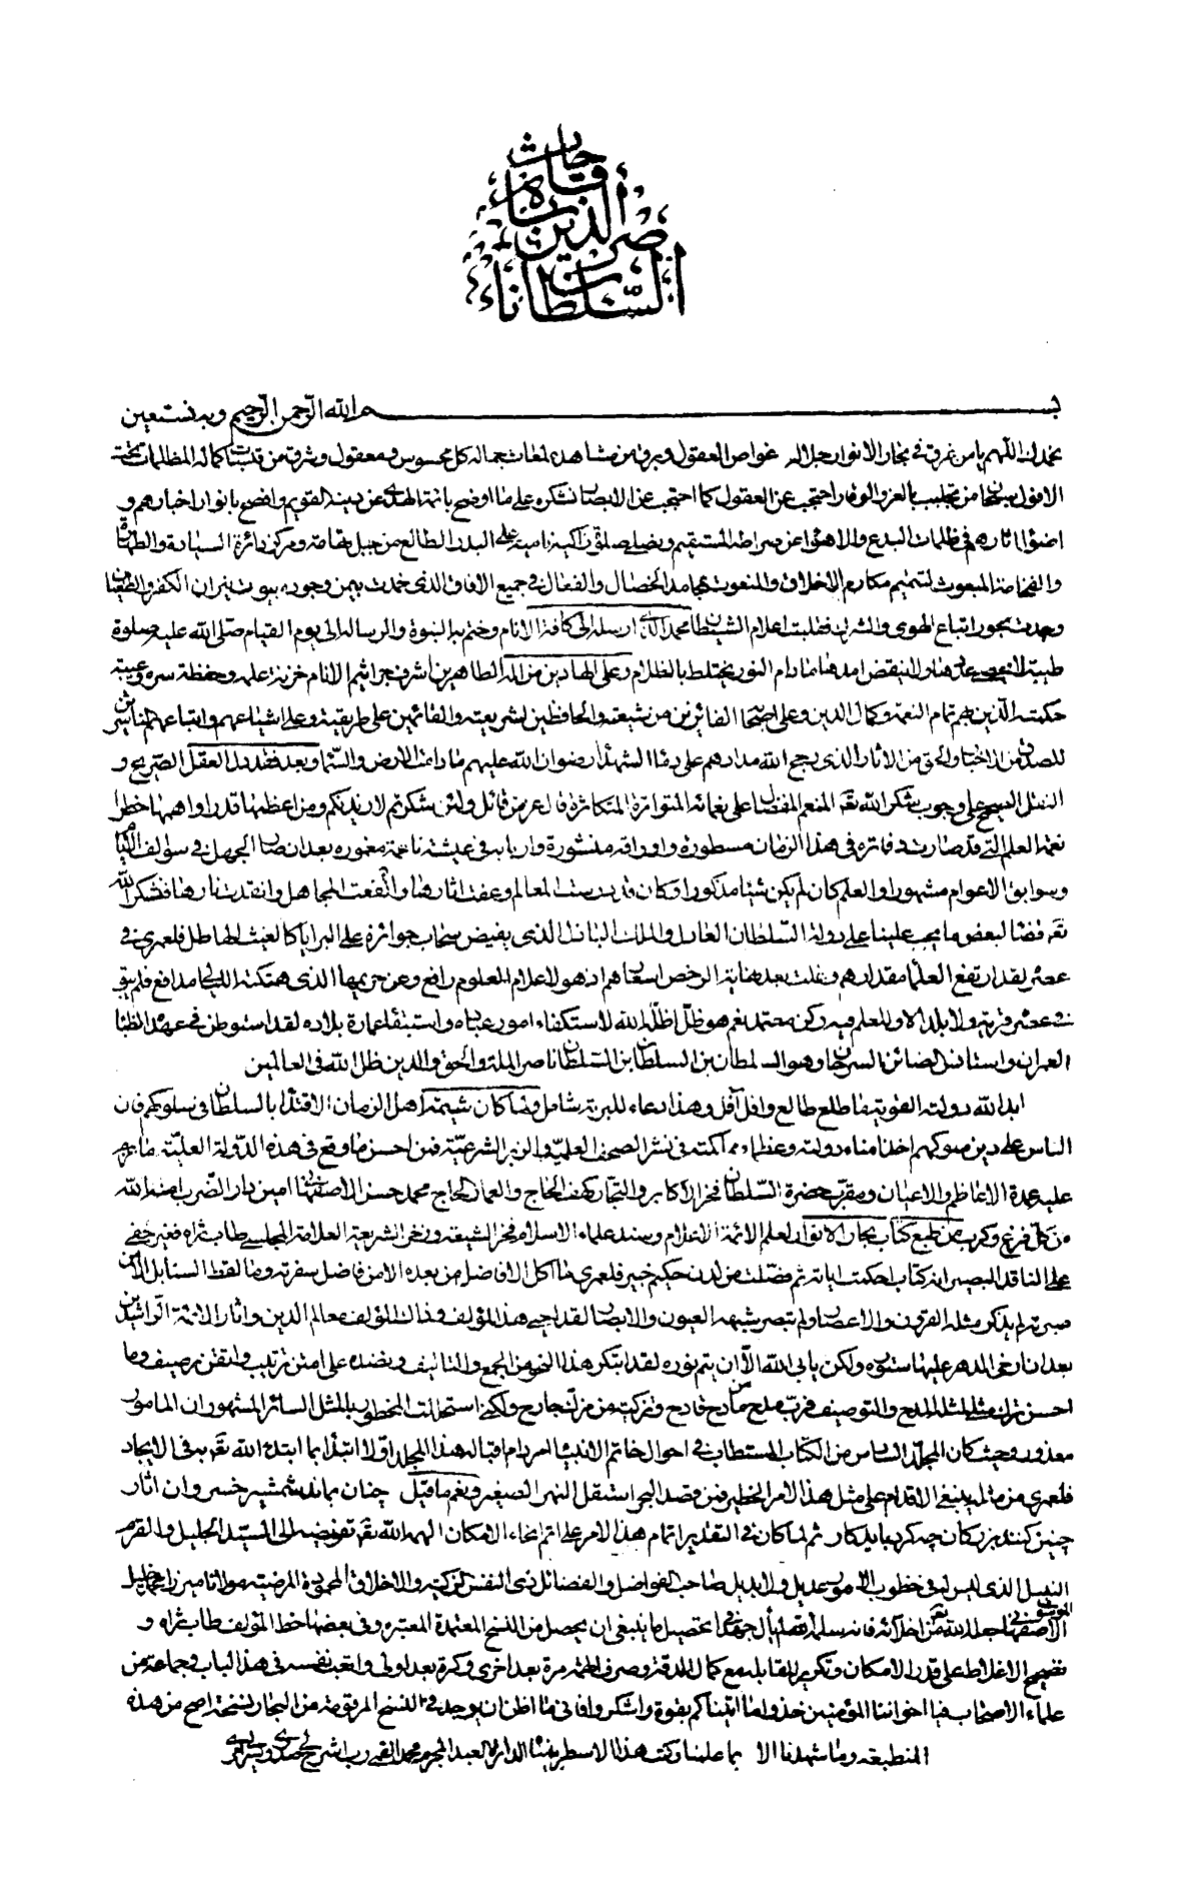 السلطان ناصر الدين شاه قاجار
بسم الله الرحمن الرحيم وبه نستعين
نحمدك اللهم يا من غرق في بحار الانوار جلاله غواص العقول وبرق من مشاهدة لمعات جماله كل محسوس ومعقول وشرق من
الافول سبحان من تجلبب بالعز والوقار احتجب عن العقول كما احتجب عن الابصار نشكره على ما اوضح بائمة الهدى عن دينه القويم وافصح بانوار اخبارهم و
اضواء اثارهم في ظلمات البدع والاهواء عن صراطه المستقيم ونصلي صلوة زاكية نامية على البدر الطالع من جبل تهامة ومركز دائرة السيادة والطهارة
والفخامة المبعوث لتتميم مكارم الاخلاق والمنعوت بمحامد الخصال والفعال في جميع الافاق الذي خمدت بيمن وجوده بيوت نيران الكفر والطغيان
وبحور اتباع الهوى والشرك اعلام الشيطان محمد الذي ارسله الى كافة الانام وختم به النبوة والرسالة الى يوم القيام صلى الله عليه صلوة
طيبة لا ينقض امدها ما دام النور يختلط بالظلام وعلى الهادين من اله الطاهرين اشرف جراثيم الانام خزنة علمه وحفظة سره وعيبة
حكمته الذين بهم تمام النعمة وكمال الدين وعلى اصحابه الفائزين من شيعته والحافظين لشريعته والقائمين على طريقته وعلى اشياعهم واتباعهم الناشرين
من الاثار الذي رجح الله مدادهم على دماء الشهداء رضوان الله عليهم ما دامت الارض والسماء وبعد فقد دل العقل الصريح و
النقل الصحيح على وجوب شكر الله تعالى المنعم المفضال على نعمائه المتواترة المتكاثرة قال عز من قائل ولئن شكرتم لازيدنكم ومن اعظمها قدرا واهمها خطرا
نعمة العلم التي قد صارت دفاتره في هذا الزمان مسطورة واوراقه منشورة واربابه في عيشة ناعمة مغمورة بعد ان صار الجهل في سوالف الايام
وسوابق الاعوام مشهورا والعلم كان لم يكن شيئا مذكورا وكان قد درست المعالم وعفت اثارها وارتفعت المجاهل واتقدت نارها فنشكر الله
تعالى قضاء لبعض ما يجب علينا على دولة السلطان العادل والملك الباذل الذي يفيض سحاب جوائزه على البرايا كالغيث الهاطل فلعمري في
عصره لقد ارتفع العلماء مقدارهم وغلت بعد نهاية الرخص اسعارهم اذ هو لاعلام العلوم رافع وعن حريمها الذي هتكته الليالي مدافع فلم يبق
في عصره قرية ولا بلد الا وللعلم فيه ركن معتمد نعم هو ظل اظله الله لاستكفاء امور عباده واستبقاء عمارة بلاده لقد استوطن في عهده الظباء
العمران واستانس الضائن السرحان وهو السلطان بن السلطان بن السلطان ناصر الملة والحق والدين ظل الله في العالمين
ابد الله دولته القوية ما طلع طالع وافل آفل وهذا دعاء للبرية شامل ولما كان شيمة اهل الزمان الاقتداء بالسلطان في سلوكهم فان
الناس على دين ملوكهم اخذ امناء دولته وعظماء مملكته في نشر الصحف العلمية والزبر الشرعية فمن احسن ما وقع في هذه الدولة العلية ما عزم
عليه عمدة الاعاظم والاعيان ومقرب حضرة السلطان فخر الاكابر والتجار كهف الحاج والعمار الحاج محمد حسن الاصفهاني امين دار الضرب امنه الله
من كل فزع وكرب من طبع كتاب بحار الانوار لعلم الائمة الاعلام وسند علماء الاسلام فخر الشيعة وذخر الشريعة العلامة المجلسي طاب ثراه فغير خفي
على الناقد البصير انه كتاب احكمت اياته ثم فصلت من لدن حكيم خبير فلعمري ما اكل الافاضل من بعده الا من فاضل سفرته وما لقط السنابل الا من
صبرته لم يذكر مثله القرون والاعصار ولم تبصر شبهه العيون والابصار لقد احيى هذا المؤلف وذاك المؤلف معالم الدين واثار الائمة الراشدين
بعد ان ارخى الدهر عليها ستوره ولكن يابى الله الا ان يتم نوره لقد ابتكر هذا النحو من الجمع والتاليف ونضده على امتن ترتيب واتقن ترصيف وما
احسن ترك مثلي لمثله المدح والتوصيف فرب مدح من مادح قادح وتزكية من مزك جارح ولكني استهلت المخطور بالمثل السائر المشهور ان المامور
معذور وحيث كان المجلد السادس من الكتاب المستطاب في احوال خاتم الانبياء لهذا المجلد اولا ابتداء بما ابتدء الله تعالى به في الايجاد
فلعمري من مثله ينبغي الاقدام على مثل هذا الامر الخطير فمن قصد البحر استقل النهر الصغير ونعم ما قيل چنان بماند شمشير خسروان اثار
چنين كنند بزرگان چه كرد بايد كار ثم لما كان في التقدير اتمام هذا الامر على اتم انحاء الامكان الهمه الله تعالى تفويضه الى السيد الجليل والقرم
النبيل الذي ليس له في خطوب الامور عديل ولا بديل صاحب الفواضل والفضائل ذي النفس الزكية والاخلاق المحمودة المرضية مولانا ميرزا محمد خليل
الموسوي الاصفهاني اجله الله تعالى من اخلائه فانه سلمه الله تعالى لم يأل جهدا في تحصيل ما ينبغي ان يحصل من النسخ المعتمدة المعتبرة وفي بعضها خط المؤلف طاب ثراه و
تصحيح الاغلاط على قدر الامكان وتكرير المقابلة مع كمال الدقة وصرف الهمة مرة بعد اخرى وكرة بعد اولى واتعب نفسه في هذا الباب وجماعة من
علماء الاصحاب فيا اخواننا المؤمنين خذوا ما اتيناكم بقوة واشكروا فاني ما اظن ان يوجد في النسخ المرقومة من البحار نسخة اصح من هذه
المنطبعة وما شهدنا الا بما علمنا وكتب هذا الاسطر بيمناه الداثرة العبد المجرم محمد القمي